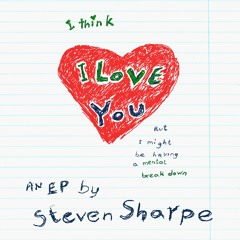 I think
I LOVE
You
But
I might
be having
a mental
break down
AN EP by
Steven Sharpe